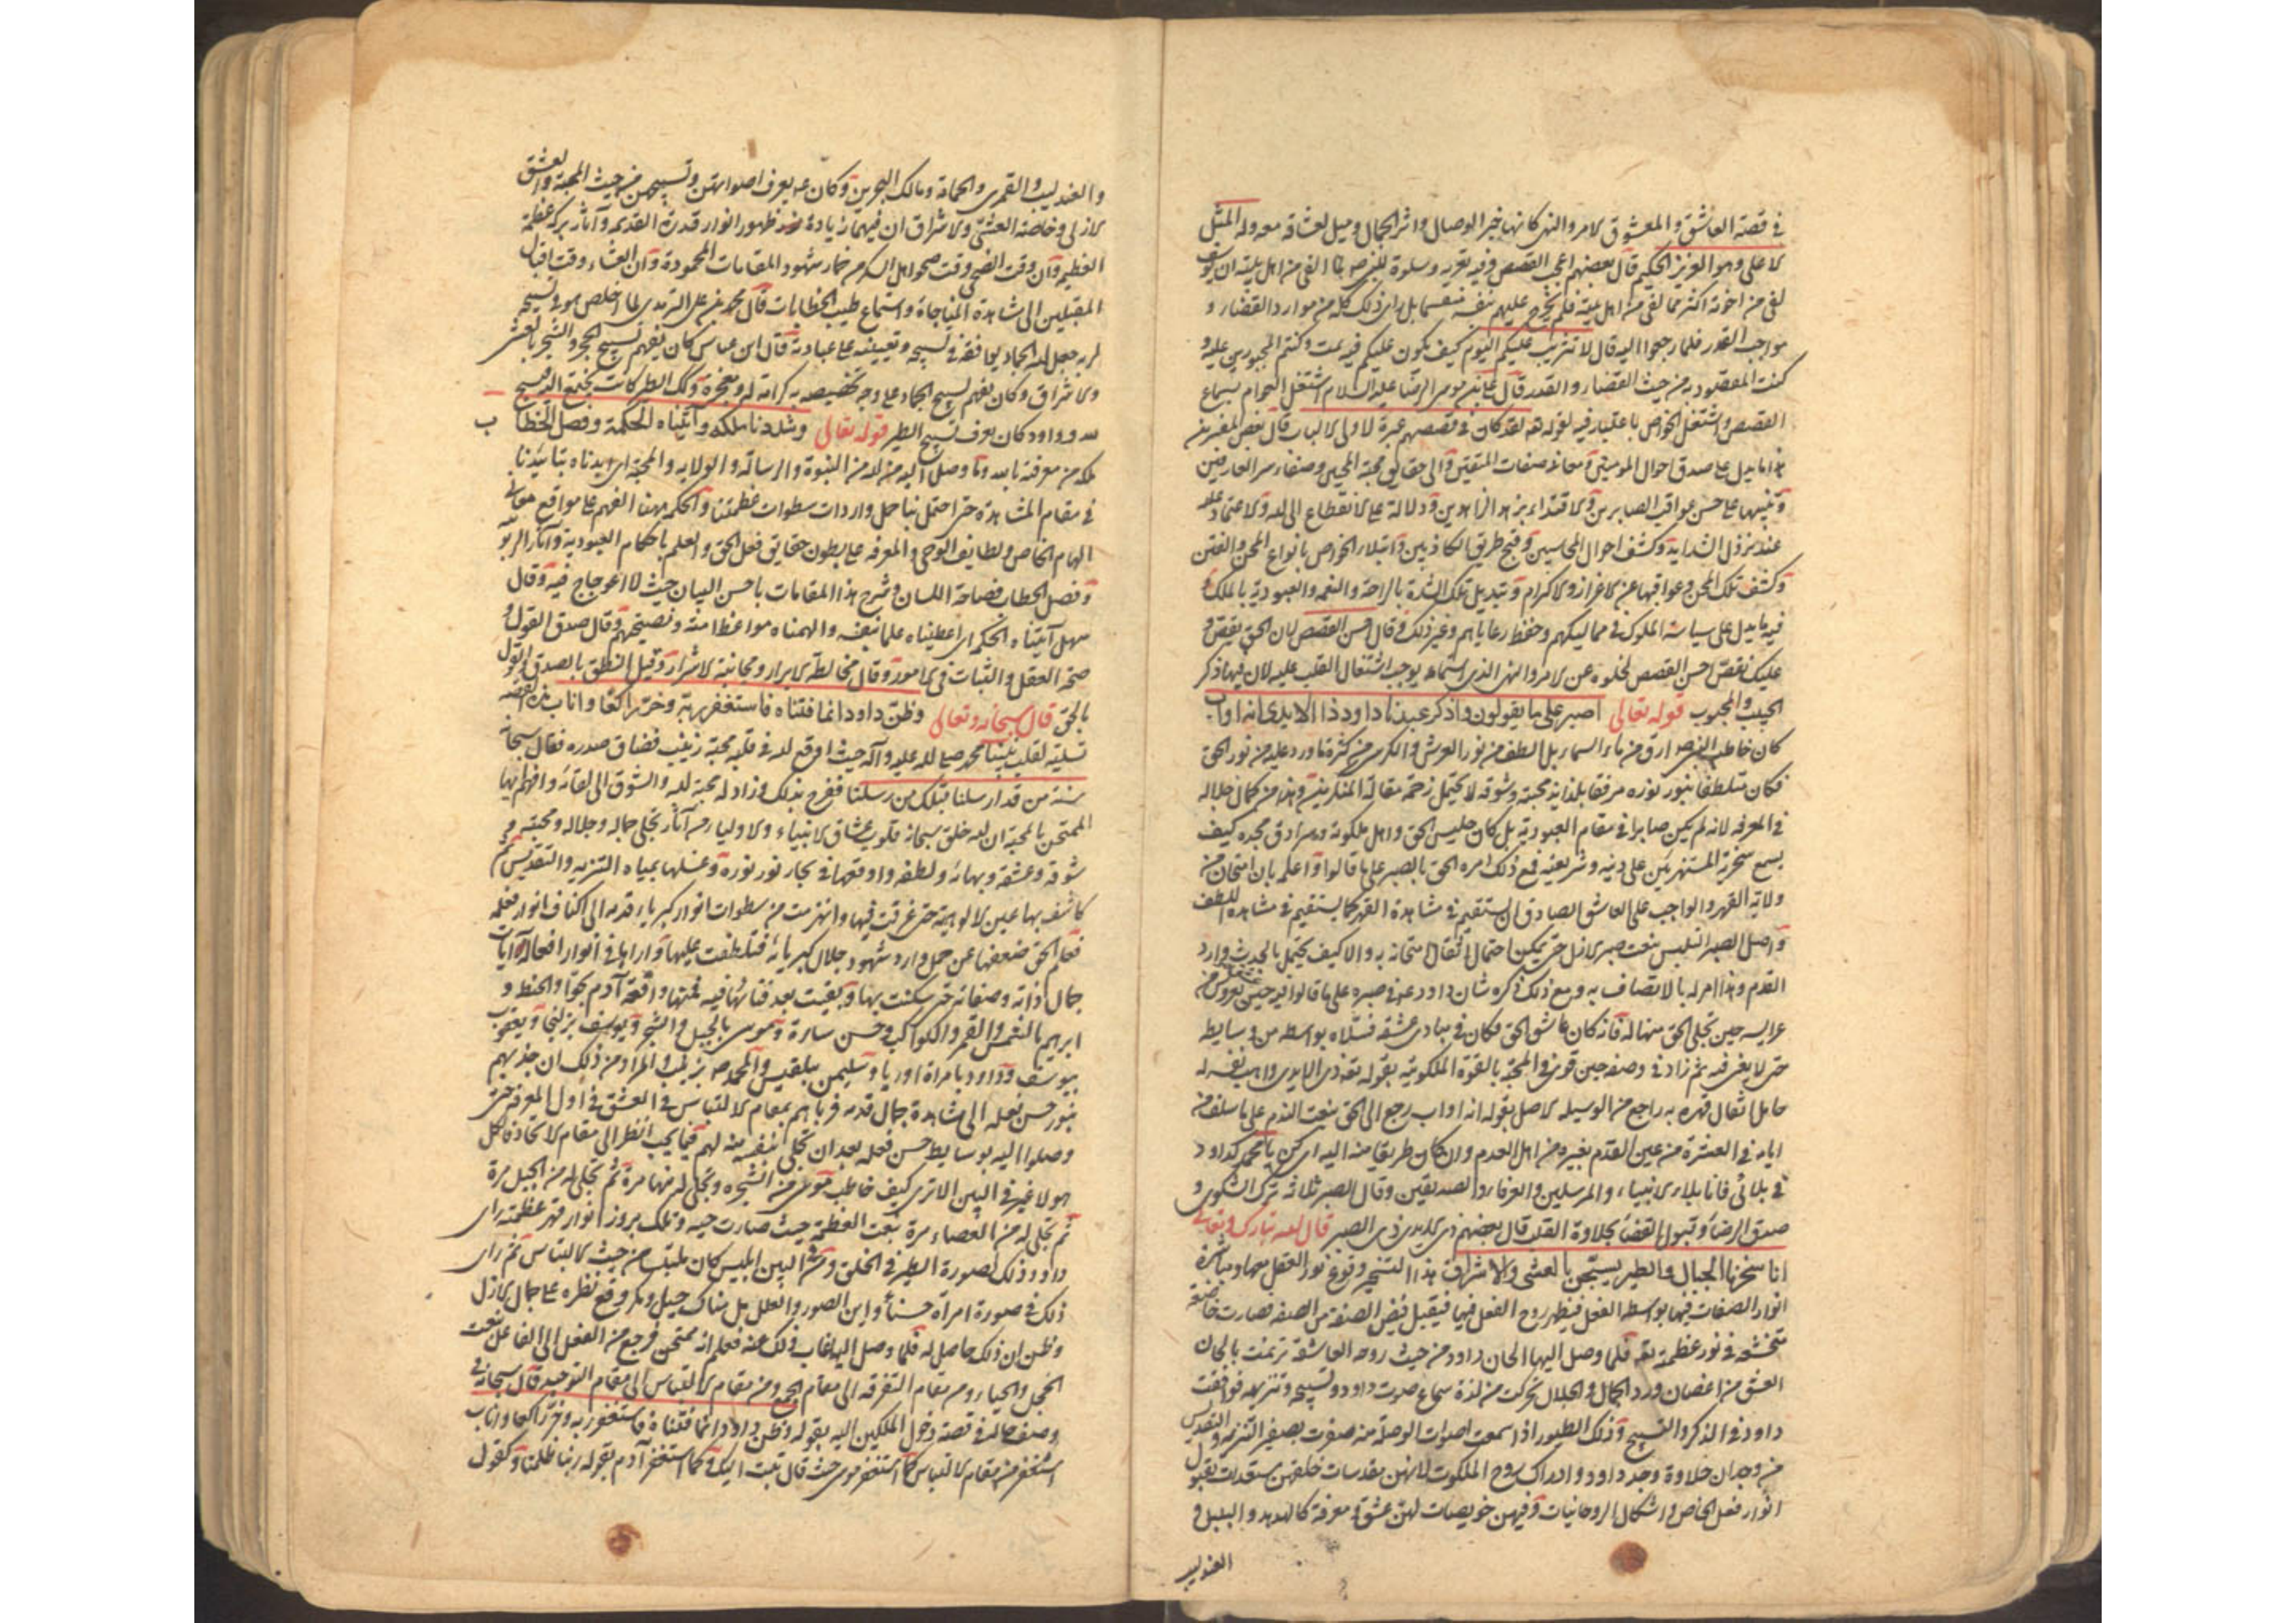 في قصة العاشق والمعشوق لامر والنهى كانها خبر الوصال واثر الجمال وميل لعشاقه معه وله المثل
لاعلى وهو العزيز الحكيم قال بعضهم اعجب القصص وفيه تعزية وسلوة للنبى صم بما القى من اهل بيته ان يوسف
لقى من اخوته اكثر مما لقى من اهل بيته فلم يخرج عليهم بل راى ذلك كله من موارد القضاء و
مواجب القدر فلما رجعوا اليه قال لا تثريب عليكم اليوم كيف يكون عليكم فيه عتب وكنتم المجبورين عليه و
كنت المقصود به من حيث القضاء والقدر قال على بن موسى الرضا عليه السلام اشتغل العوام بسماع
القصص واشتغل الخواص باعتبار فيه لقوله تعه لقد كان في قصصهم عبرة لاولى الالباب قال بعض المفسرين
هذا مما يدل على صدق احوال المومنين ومعاني صفات المتقين والى حقايق محبة المحبين وصفاء سر العارفين
وتنبيها على حسن عواقب الصابرين ودلالة على لانقطاع الى الله ولاعتماد عليه
عند نزول الشدايد وكشف احوال المحسنين وقبح طريق الكاذبين وابتلاء الخواص بانواع المحن والفتن
وكشف تلك المحن وعواقبها عن لاعزاز ولاكرام وتبديل تلك الشدة بالراحة والنعمة والعبودية بالملك و
فيه ما يدل على سياسة الملوك في مماليكهم وحفظ رعاياهم وغير ذلك وقال احسن القصص لان الحق يقص و
عليك نقص احسن القصص لخلوه عن لامر والنهى الذى استماعه يوجب اشتغال القلب عليه لان فيها ذكر
الحبيب والمحبوب قوله تعالى اصبر على ما يقولون واذكر عبدنا داود ذا الايد انه اواب
كان خاطر النبى صم ارق من ماء السماء بل الطف من نور العرش والكرسى من كثرة ما ورد عليه من نور الحق
فكان متلطفا بنور نوره مرفقا بلذايذ محبته وشوقه لا يحتمل زحمة مقالة المنكرين وهذا من كمال جلاله
في المعرفه لانه لم يكن صابرا في مقام العبودية بل كان جليس الحق واهل ملكوته وسرادق مجده كيف
يسمع سخرية المستهزئين على دينه وشريعته فمع ذلك امره الحق بالصبر على ما قالوا واعلم بان امتحان من
ولاية القهر والواجب على العاشق الصادق ان يستقيم في مشاهدة القهر كما يستقيم في مشاهدة اللطف
واصل الصبر التلبس بنعت صبر لازل حتى يمكن احتمال اثقال امتحانه به والا كيف يحتمل بالحدث وارد
القدم وهذا امر له بالاتصاف به ومع ذلك ذكره شان داود في صبره على ما قالوا
عرايسه حين تجلى الحق منها له فانه كان عاشق الحق فكان في مبادى عشقه فسلاه بواسطه من وسايطه
حتى لا يغنى فيه ثم زاد في وصفه حين قوى في المحبة بالقوة الملكوتية بقوله تعه ذى الايدى
حاملا اثقال قهره به راجع من الوسيله لاصل بقوله انه اواب رجع الى الحق بنعت الندم على ما سلف من
ايامه في العشرة من عين القدم بغيره من اهل العدم وان كان طريقا منه اليه اى كن يا محمد كداود
في بلائى فانا بلاء لانبياء والمرسلين والعرفاء والصديقين وقال الصبر ثلاثه ترك الشكوى و
صدق الرضا وقبول القضاء بحلاوة القلب قال بعضهم ذى الصبر قال الله تبارك وتعالى
انا سخرنا الجبال والطير يسبحن بالعشى والاشراق هذا التسخير وقوع نور العقل بها ومباشرة
انوار الصفات فيها بواسطه الفعل فيظهر روح الفعل فيها فيقبل فيض الصفة من الصفه فصارت خاضعة
متخشعة في نور عظمته تعه فلما وصل اليها الحان داود من حيث روحه العاشقة ترنمت بالحان
العشق من اغصان ورد الجمال والجلال تحركت من لذة سماع صوت داود وتسبيحه وتنزيهه فوافقت
داود في الذكر والتسبيح وكذلك الطيور اذا سمعت اصوات الوصلة منه صفرت بصفير التنزيه والتقديس
من وجدان حلاوة وجد داود وادراك روح الملكوت لانهن مقدسات خلقهن مستعدات بقبول
انوار فعل الخاص واشكال الروحانيات وفيهن خويصات لهن عشق ومعرفة كالهدهد والبلبل و
العندليب
والعندليب والقمرى والحمامة ومالك البحرين وكان عه يعرف اصواتهن وتسبيحهن من حيث المحبة والعشق
لازلى وخاصة العشى ولاشراق ان فيهما زيادة ظهور انوار قدرة القديمه وآثار بركة عظمة
العظيم وان وقت الضحى وقت صحو اهل السكر من خمار شهود المقامات المحمودة وان العشاء وقت اقبال
المقبلين الى مشاهدة المناجاة واستماع طيب الخطابات قال محمد بن على الترمدى لما اخلص هو في تسبيحه
لربه جعل الله الجماد يوافقه في تسبيحه وتعيينه على عبادته قال ابن عباس كان يفهم تسبيح الحجر والشجر بالعشى
ولاشراق وكان يفهم تسبيح الجماد على وجه تخصيصه به كرامة له ومعجزة وكذلك الطير كانت تجتمع اليه فيسبح
لله وداود كان يعرف تسبيح الطير قوله تعالى وشددنا ملكه وآتيناه الحكمة وفصل الخطاب
ملكه من معرفته بالله وما وصل اليه من الله من النبوة والرسالة والولايه والمحبة اى ايدناه بتائيدنا
في مقام المشاهدة حتى احتمل بنا حمل واردات سطوات عظمتنا والحكمه ههنا الفهم على مواقع معانى
الهام الخاص ولطايف الوحى والمعرفه على بطون حقايق فعل الحق والعلم باحكام العبودية وآثار الربو
وفصل الخطاب فصاحة اللسان وشرح هذا المقامات باحسن البيان حيث لا اعوجاج فيه وقال
سهل آتيناه الحكمة اى اعطيناه علما بنفسه والهمناه مواعظ امته ونصيحتهم وقال صدق القول و
صحة العقل والثبات في لامور وقال مخالطة لابرار ومجانبة لاشرار وقيل النطق بالصدق والقول
بالحق قال سبحانه وتعالى وظن داود انما فتناه فاستغفر ربه وخر راكعا واناب هذه القصه
تسلية لقلب نبينا محمد صلى الله عليه وآله حيث اوقع الله في قلبه محبة زينب فضاق صدره فقال سبحانه
سنة من قد ارسلنا قبلك من رسلنا ففرح بذلك وزاد له محبة لله والشوق الى لقائه وافهم ايها
الممتحن بالمحبة ان الله خلق سبحانه قلوب عشاق لانبياء ولاولياء من آثار تجلى جماله وجلاله ومحبته و
شوقه وعشقه وبهائه ولطفه واوقعها في بحار نور نوره وغسلها بمياه التنزيه والتقديس ثم
كاشف بها عين لالوهية حتى غرقت فيها وانهزمت من سطوات انوار كبرياء قدمه الى اكناف انوار فعله
فعلم الحق ضعفها عن حمل وارد شهود جلال كبريائه فتلطفت عليها واراها في انوار افعاله وآياته
جمال ذاته وصفاته حتى سكنت بها وبقيت بعد فنائها فيه فمنها واقعة آدم بحوا والحنطه و
ابراهيم بالشمس والقمر والكواكب وحسن سارة وموسى بالجبل والشجر ويوسف بزليخا ويعقوب
بيوسف وداود بامراة اوريا وسليمن ببلقيس ومحمد صم بزينب والمراد من ذلك ان جذبهم
بنور حسن فعله الى مشاهدة جمال قدمه فرباهم بمقام لالتباس في العشق في اول المعرفه حتى
وصلوا اليه بوسايط حسن فعله بعد ان تجلى بنفسه منه لهم فيما يجب انظر الى مقام لاتحاد فالكل
هو لا غير في البين الا ترى كيف خاطب موسى من الشجره وتجلى له منها مرة ثم تجلى له من الجبل مرة
ثم تجلى له من العصاء مرة بنعت العظمة حيث صارت حية وتلك بروز انوار قهر عظمته راى
داود ذلك بصورة الطير في الخلق البين ابليس كان ملتبسا من حيث لالتباس ثم راى
ذلك في صورة امراة حسناء واين الصور والعلل بل هناك حيل ومكر وقع نظره على جمال لازل
وظن ان ذلك حاصل له فلما وصل اليه غاب ذلك عنه فعلم انه ممتحن فرجع من الفعل الى الفاعل بنعت
الخجل والحياء ومن مقام التفرقه الى مقام الجمع ومن مقام لالتباس الى مقام التوحيد قال سبحانه في
وصف حاله في قصة دخول الملكين اليه بقوله وظن داود انما فتناه فاستغفر ربه وخر راكعا واناب
استغفر من مقام لالتباس كما استغفر موسى حيث قال تبت اليك وكما استغفر آدم بقوله ربنا ظلمنا وكقول